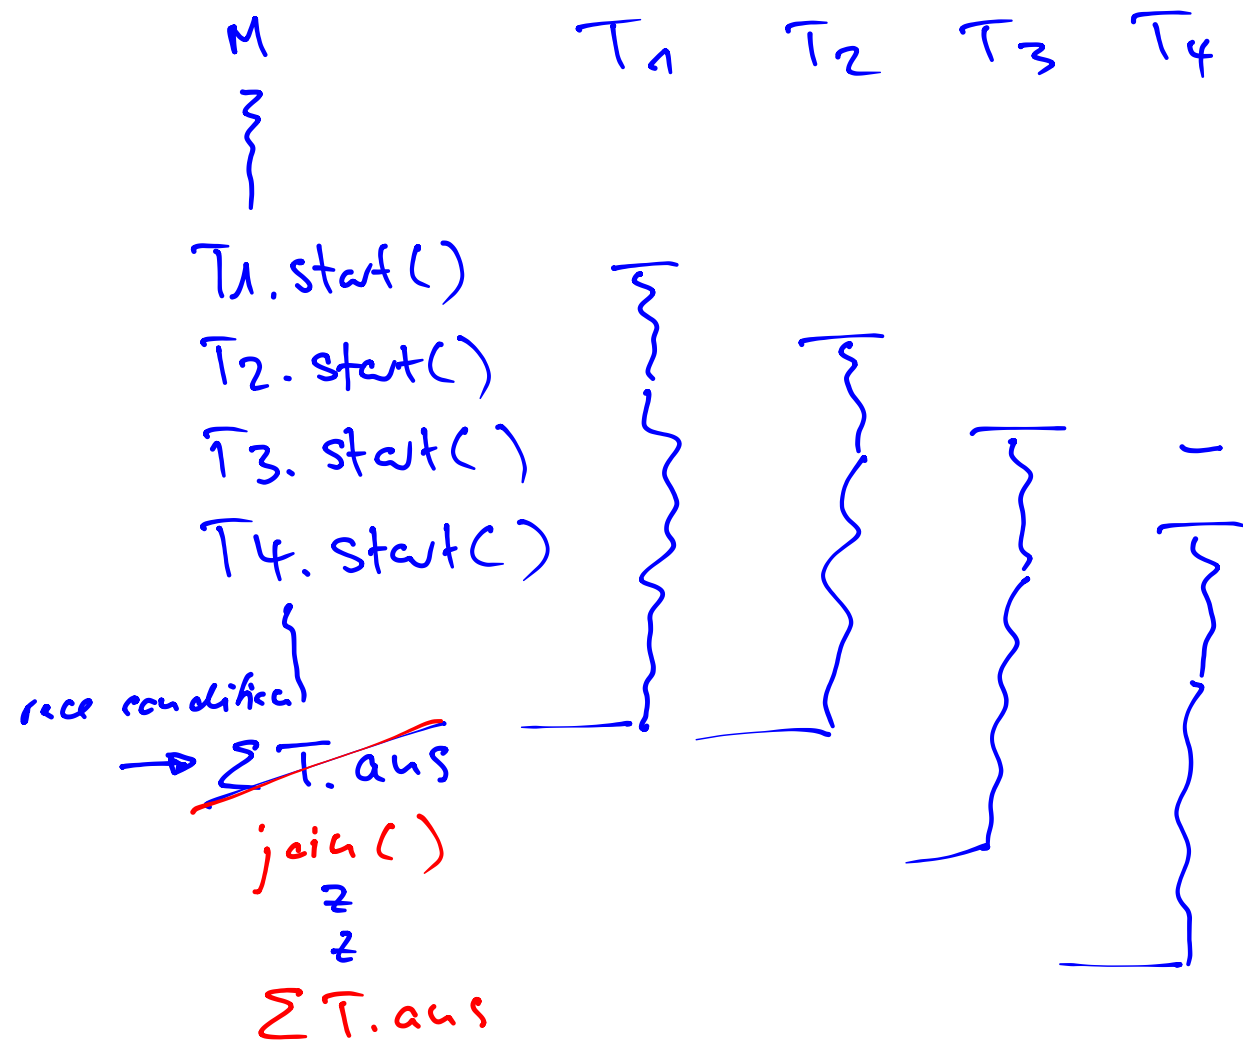 M T1 T2 T3 T4
T1.start()
T2.start()
T3.start()
T4.start()
race condition
→ ΣT.ans
join()
z
z
ΣT.ans